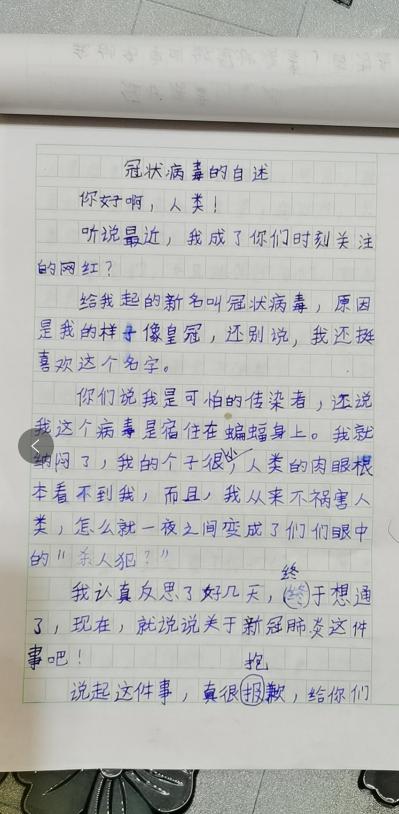 冠状病毒的自述
你好啊，人类！
听说最近，我成了你们时刻关注
的网红？
给我起的新名叫冠状病毒，原因
是我的样子像皇冠，还别说，我还挺
喜欢这个名字。
你们说我是可怕的传染者，还说
我这个病毒是宿住在蝙蝠身上。我就
纳闷了，我的个子很小，人类的肉眼根
本看不到我，而且，我从来不祸害人
类，怎么就一夜之间变成了们们眼中
的“杀人犯？”
终
我认真反思了好几天，终于想通
了，现在，就说说关于新冠肺炎这件
事吧！
抱
说起这件事，真很报歉，给你们